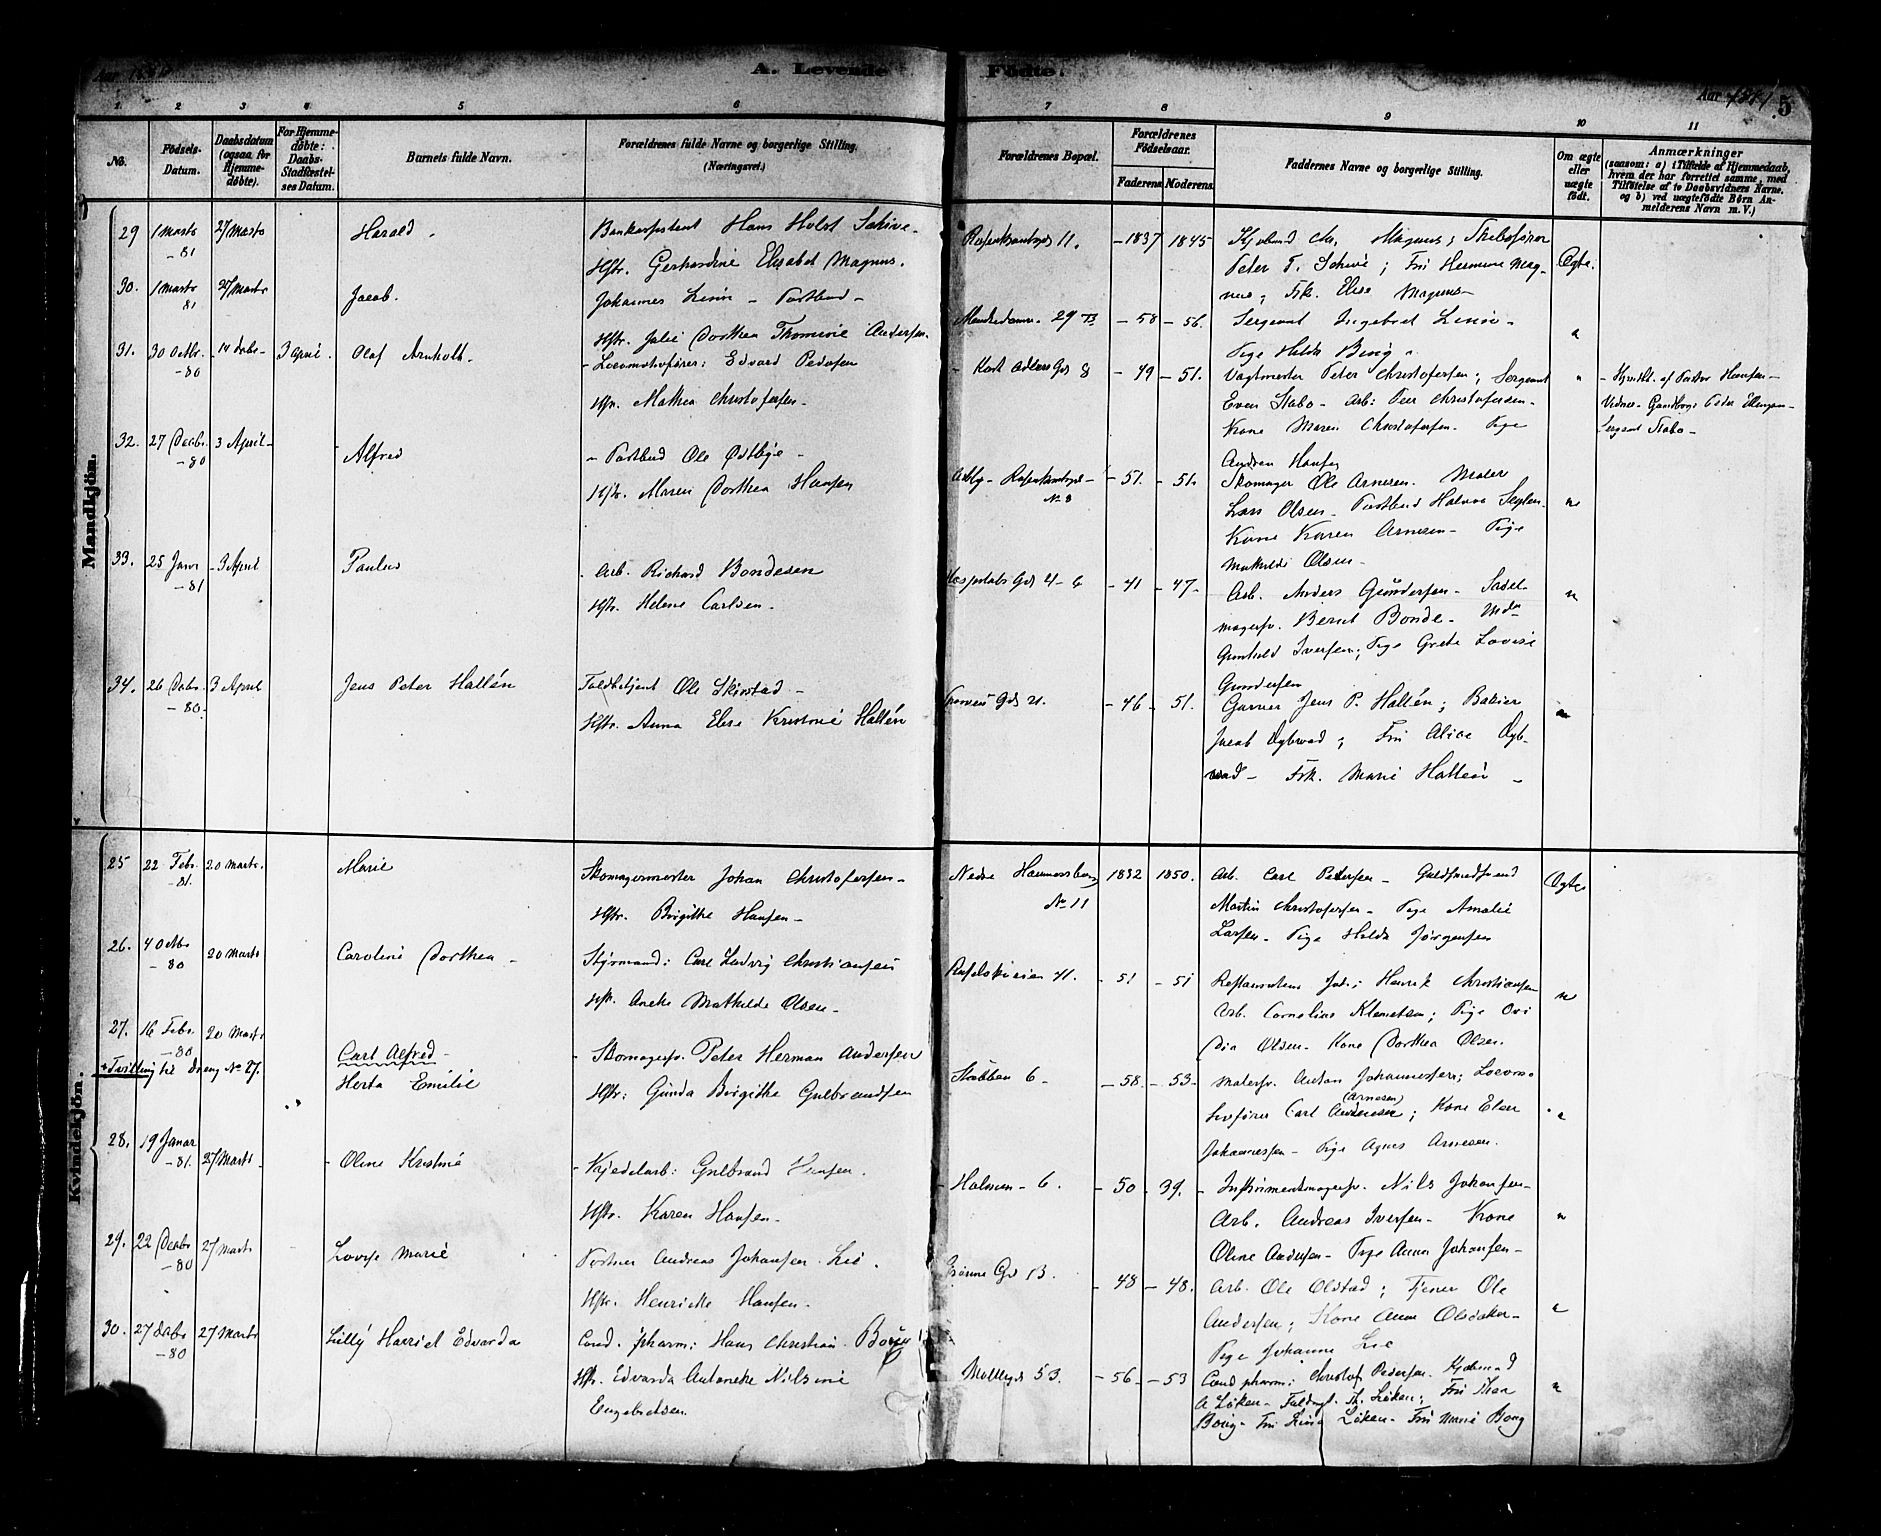 Aar 1881
A. Levende Fødte.
Aar 1881 5
1. 2 3 4 5 6 7 8 9 10 11
No.
Fødsels-Datum.
Daabsdatum (ogsaa for Hjemme-døbte).
For Hjemme-døbte: Daabs-Stadfæstel-ses Datum.
Barnets fulde Navn.
Forældrenes fulde Navne og borgerlige Stilling. (Næringsvei.)
Forældrenes Bopæl.
Forældrenes Fødselsaar.
Faderens. Moderens.
Faddernes Navne og borgerlige Stilling.
Om ægte eller uægte født.
Anmærkninger
(saasom: a) i Tilfælde af Hjemmedaab, hvem der har forrettet samme, med Tilføielse af to Daabsvidners Navne. og b) ved uægtefødte Børn An-melderens Navn m. V.)
Mandkjön.
29 1 Marts -81 27 Marts Harald. Hans Holst Schive-
Hstr. Gerhardine Elisabet Magnus.
11. -1837 1845
Magnus; Skibsfører
Peter T. Schive; Fru Hermine Mag-
nus; Frk. Elise Magnus-
Ægte.
30. 1 Marts 81 27 Marts Jacob. Johannes - Postbud-
Hstr. Julie Dorthea Andersen.
29 B -58 -56. Sergeant
Pige Hilda Berg
31. 30 Octbr. -80 -14 Decbr- 3 April. Olaf Arnholdt. -Locomotivfører: Edvard Pedersen
Hstr. Mathea Christofersen-
- Kort Adlers Gd 8 -49 -51. Vagtmester Peter Christofersen; Sergeant
Even Stabo- Arb: Peer Christofersen-
Kone Maren Christofersen- Pige
Andrea Hansen
- Hjmdbt. af Pastor Hansen-
Peder Ellingsen-
Sergeant Stabo-
32. 27 Decbr. -80 3 April- Alfred - Postbud Ole Østbye-
Hstr. Maren Dorthea Hansen
No 8 -51. -51. Skomager Ole Arnesen. Maler
Lars Olsen- Postbud Halvor
Kone Karen Arnesen- Pige
Mathilde Olsen-
33. 25 Janr -81 -3 April Paulus Arb. Richard Bondesen
Hstr. Helene Carlsen-
Hospitals Gd 4-6 -41 -47- Arb. Anders Gundersen- Sadel-
magersv. Bernt Bonde-
Gunhild Iversen; Pige Grete Lovise
Gundersen
34. 26 Decbr. -80. 3 April Jens Peter Hallén Toldbetjent Ole Skirstad-
Hstr. Anna Elise Kristine Hallén
-46 -51. Garver Jens P. Hallén; Bakier
Jacob Dybwad; Fru Alice Dyb-
wad- Frk. Marie Hallén-
Kvindekjön.
25 22 Febr. -81. 20 Marts. Marie Skomagermester Johan Christofersen-
Hstr. Birgithe Hansen-
Nedre Hammersborg No 11 1832 1850. Arb. Carl Petersen- Guldsmedsvend
Martin Christofersen- Pige Amalie
Larsen- Pige Hilda Jørgensen
Ægte
26. 4 Octbr -80 20 Marts Caroline Dorthea- Styrmand: Carl Ludvig Christiansen
Hstr. Anette Mathilde Olsen-
-51 -51 Henrik Christiansen
Arb. Cornelius Klemetsen; Pige Ovi
dia Olsen- Kone Dorthea Olsen.
27. 16 Febr. -80 20 Marts
Tvilling til Dreng No 27.
Carl Alfred-
Herta Emilie
- Skomagersv. Peter Herman Andersen
Hstr: Gunda Birgithe Gulbrandsen
Stubben 6- -58. -53. Malersv. Anton Johannessen; Locomo-
tivfører Carl Andersen (Arnesen); Kone Elen
Johannessen- Pige Agnes Arnesen.
28. 19 Januar -81. 27 Marts- - Oline Kristine - Kjedelarb: Gulbrand Hansen.
Hstr. Karen Hansen-
- Holmen- 6. -50 -39. - Instrumentmagersv. Nils Johansen-
Arb. Andreas Iversen- Kone
Oline Andersen- Pige Anna Johansen-
29. 22 Decbr -80 27 Marts Lovise Marie Portner Andreas Johansen Lie.
Hstr. Henriette Hansen.
Grønne Gd 13. -48 -48. Arb. Ole Olstad; Tjener Ole
Andersen; Kone Anne
Pige Johanne Lie
30. 27 Decbr -80 27 Marts Lilly Harriet Edvarda Cand. pharm: Hans Christian Borg
Hstr. Edvarda Antonette Nilsine
Engebretsen.
Møllegd 53. -56. -53 Cand pharm: Christof Pedersen. Kjøbmand
A Løken- Th. Løken; Fru Thea
Borg- Fru Lina Løken- Fru Marie Borg